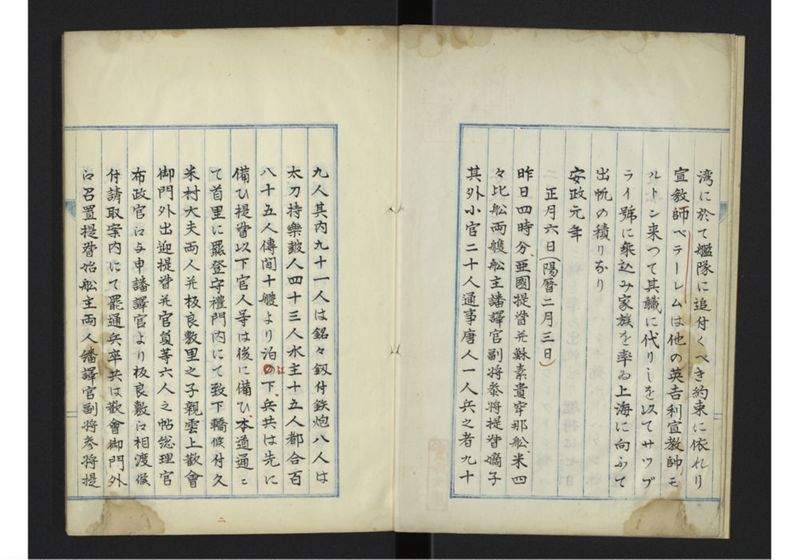 湾に於て艦隊に追付くべき約束に依れり
宣教師ベテーレムは他の英吉利宣教師モ
ルトン来つて其職に代りしを以てサツプ
ライ號に乘込み家族を率ゐ上海に向ふて
出帆の積りなり
安政元年
二正月六日(陽暦二月三日)
昨日四時分亜國提督并蘇素貴宰那舩米四
々比舩両艘舩主譒譯官副将叅将提督嫡子
其外小官二十人通事唐人一人兵之者九十
九人其内九十一人は銘々釼付鉄炮八人は
太刀持樂皷人四十三人水主十五人都合百
八十五人傳間十艘より泊の下兵共は先に
は
備ひ提督以下官人等は後に備ひ本通通ニ
て首里に罷登守禮門内にて致下轎候付久
米村大夫両人并板良敷里之子親雲上歡會
御門外出迎提督并官員等六人之帖総理官
布政官江与申譒譯官より板良敷江相渡候
付請取案内にて罷通兵卒共は歡會御門外
江召置提督始舩主両人譒譯官副将参将提
二